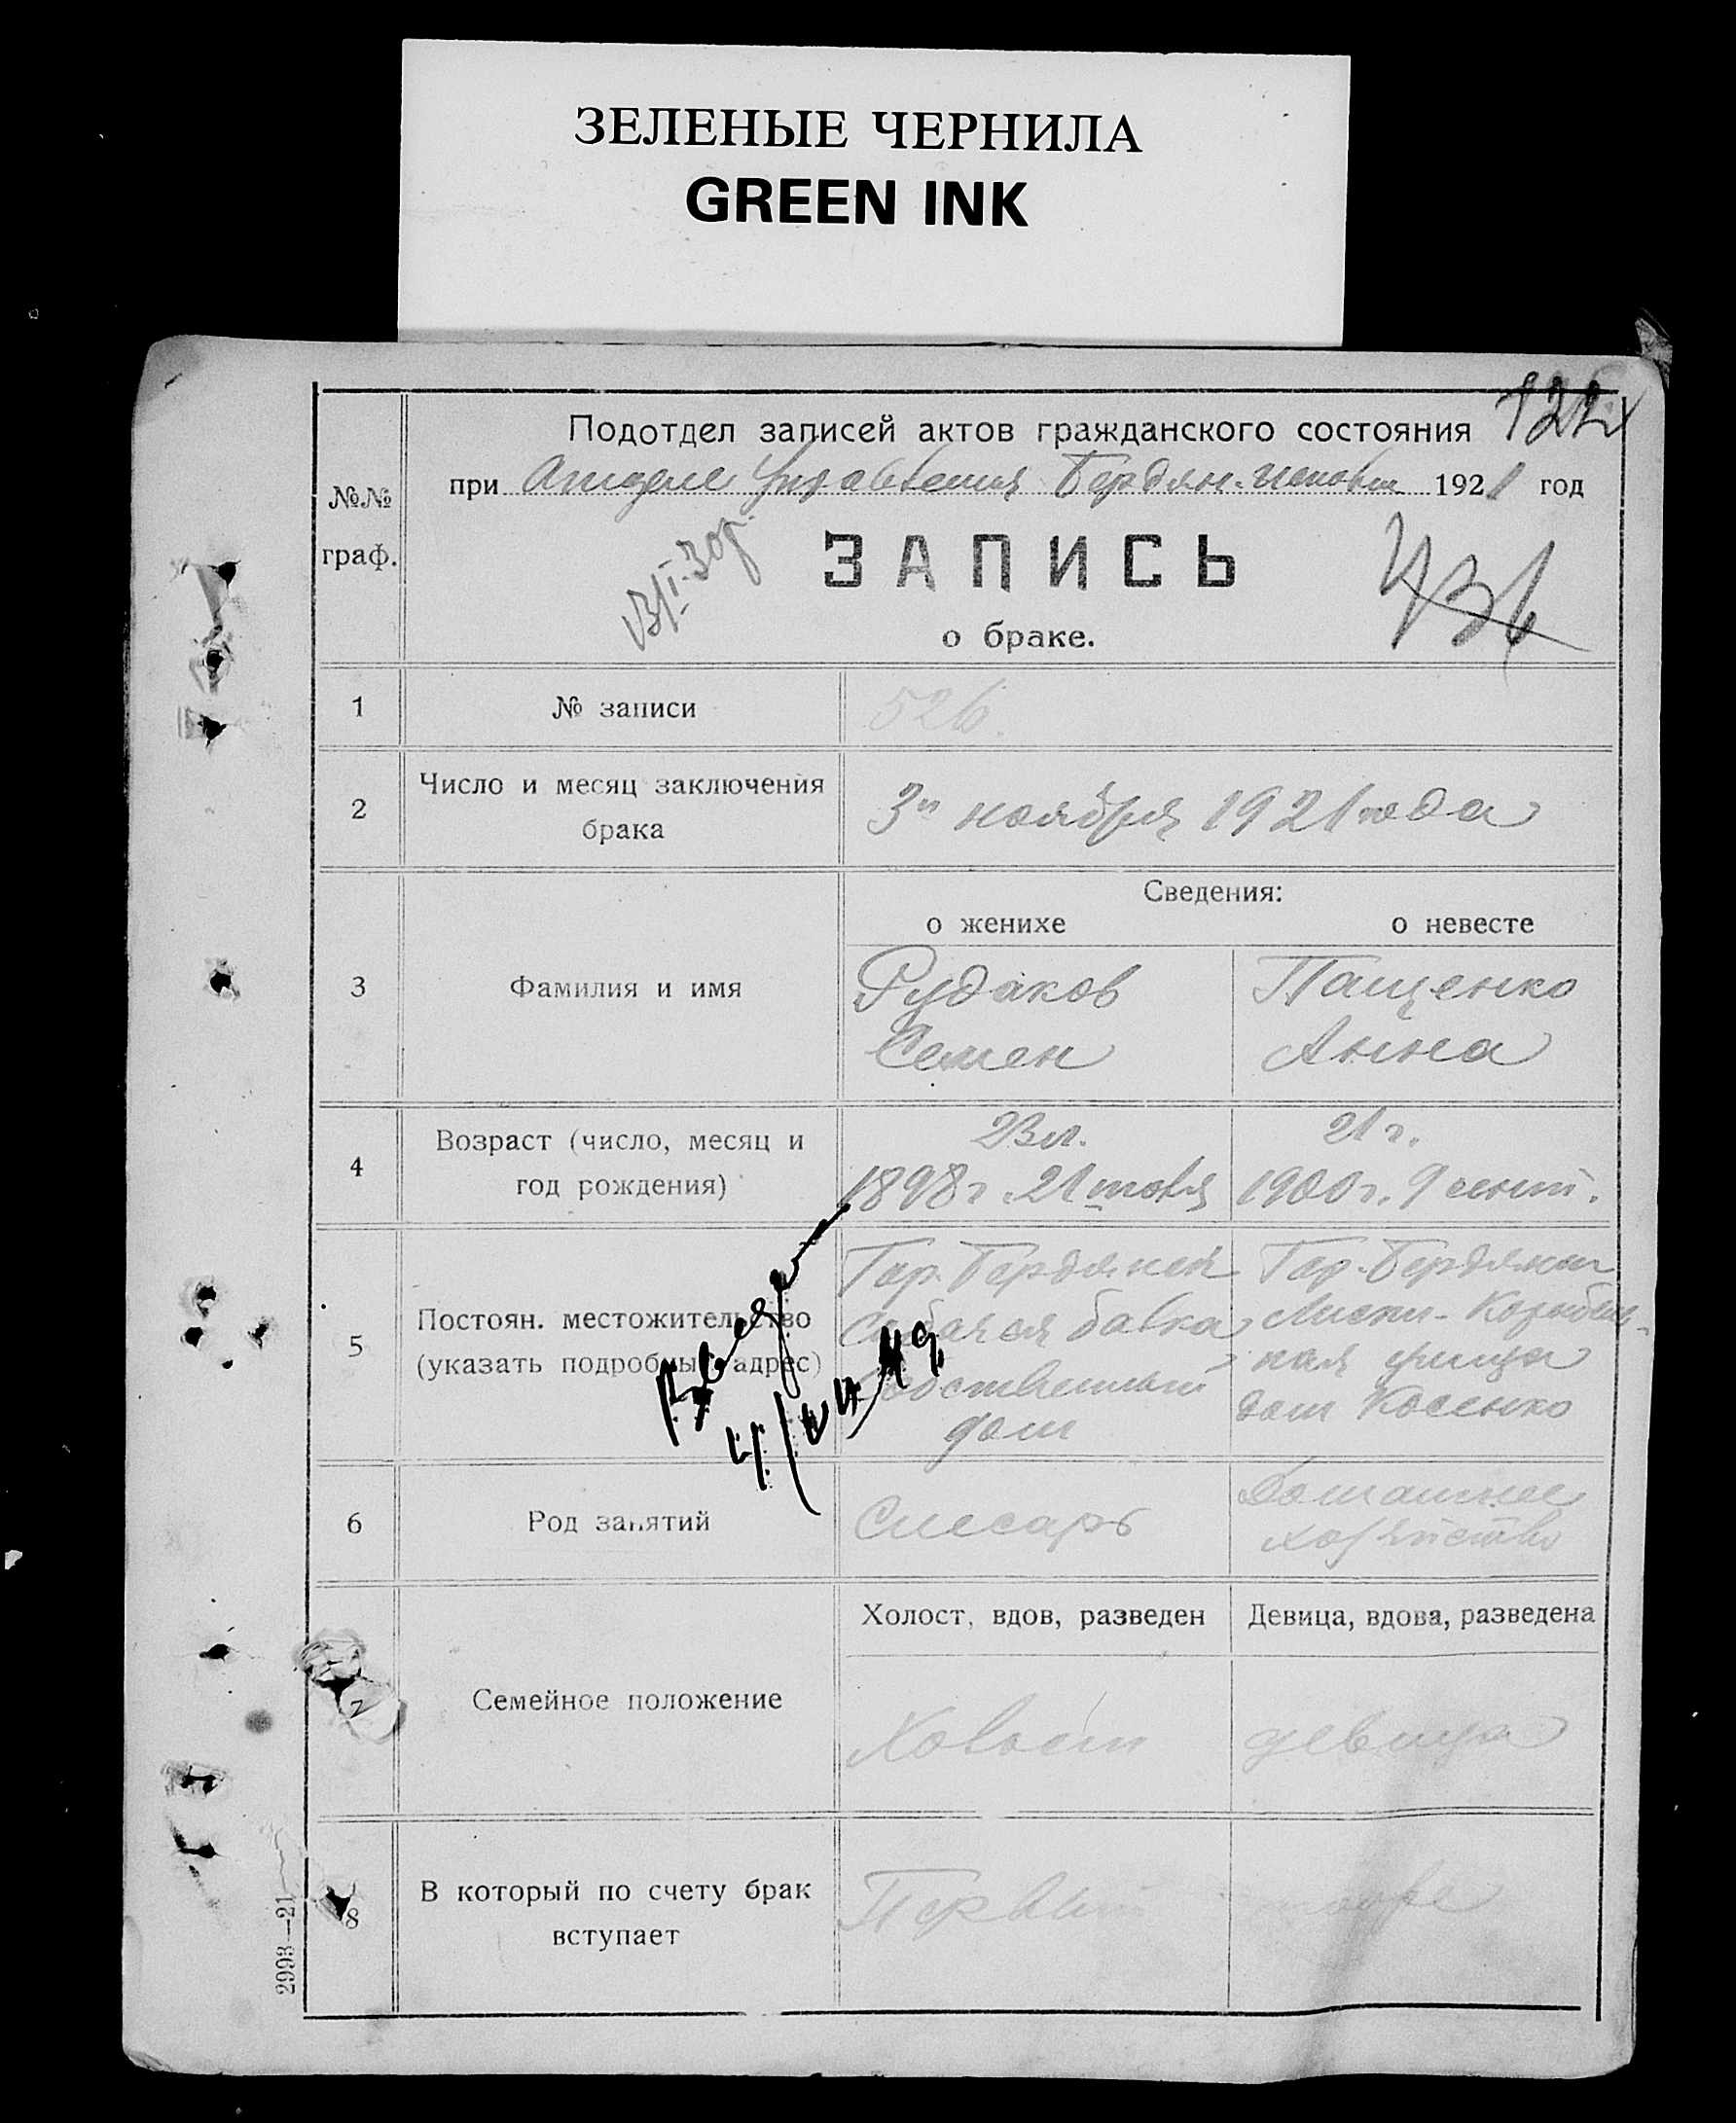 ЗЕЛЕНЫЕ ЧЕРНИЛА
GREEN INK
Подотдел записей актов гражданского состояния
при Отделе Управления Бердян. 1921 год
№№
граф.
ЗАПИСЬ
о браке.
1 № записи 526.
2 Число и месяц заключения
брака
3го ноября 1921 года
Сведения:
о женихе о невесте
3 Фамилия и имя
Рудаков Пащенко
Семен Анна
4 Возраст (число, месяц и
год рождения)
23 л. 21 г.
1898 г. 21 1900 г. 9 сент.
5 Постоян. местожительство
(указать подробный адрес)
Гор. Бердянск Гор. Бердянск
балка
Собственный улица
дом дом Косенко
6 Род занятий
Слесарь Домашнее
хозяйство
Холост, вдов, разведен Девица, вдова, разведена
Семейное положение
Холост девица
8 В который по счету брак
вступает
Первый тоже
2993—21